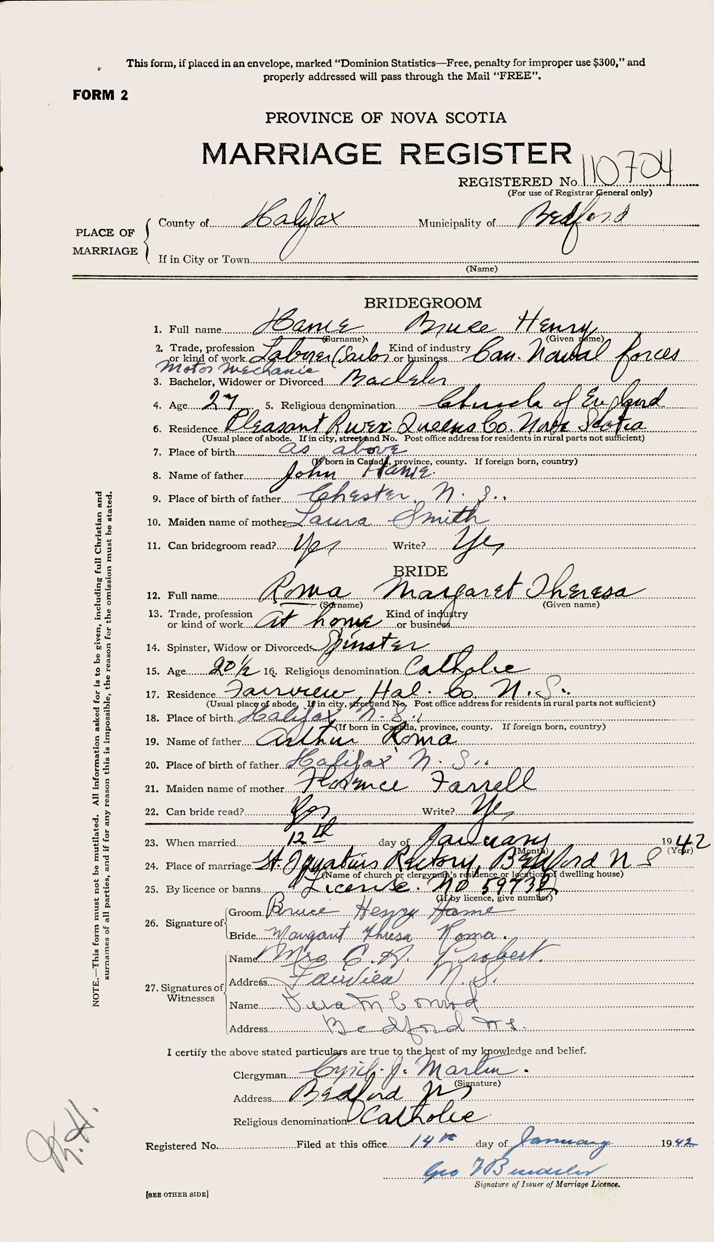 This form, if placed in an envelope, marked "Dominion Statistics—Free, penalty for improper use $300," and
properly addressed will pass through the Mail "FREE".
FORM 2
PROVINCE OF NOVA SCOTIA
MARRIAGE REGISTER
REGISTERED No. 110704
(For use of Registrar General only)
PLACE OF MARRIAGE
County of Halifax Municipality of Bedford
If in City or Town
(Name)
BRIDEGROOM
1. Full name Hame Bruce Henry
(Surname) (Given name)
2. Trade, profession or kind of work Laborer (Sailor Kind of industry or business Can. Naval forces
Motor Mechanic
3. Bachelor, Widower or Divorced Bachelor
4. Age 27 5. Religious denomination Church of England
6. Residence Pleasant River Queens Co. Nova Scotia
(Usual place of abode. If in city, street and No. Post office address for residents in rural parts not sufficient)
7. Place of birth as above
(If born in Canada, province, county. If foreign born, country)
8. Name of father John Hame
9. Place of birth of father Chester, N. S..
10. Maiden name of mother Laura Smith
11. Can bridegroom read? Yes Write? Yes
BRIDE
12. Full name Roma Margaret Theresa
(Surname) (Given name)
13. Trade, profession or kind of work at home Kind of industry or business
14. Spinster, Widow or Divorced Spinster
15. Age 20½ 16. Religious denomination Catholic
17. Residence Fairview, Hal. Co. N. S..
(Usual place of abode. If in city, street and No. Post office address for residents in rural parts not sufficient)
18. Place of birth Halifax N. S..
(If born in Canada, province, county. If foreign born, country)
19. Name of father Arthur Roma
20. Place of birth of father Halifax N. S..
21. Maiden name of mother Florence Farrell
22. Can bride read? Yes Write? Yes
23. When married 12th day of January 1942
(Month) (Year)
24. Place of marriage St. Ignatius Rectory, Bedford N S
(Name of church or clergyman's residence or location of dwelling house)
25. By licence or banns License. No 59732
(If by licence, give number)
26. Signature of
Groom Bruce Henry Hame
Bride Margaret Theresa Roma.
27. Signatures of Witnesses
Name Mrs C. R.
Address Fairview N.S.
Name Vera M Conrod
Address Bedford N.S.
I certify the above stated particulars are true to the best of my knowledge and belief.
Clergyman Cyril J. Martin.
(Signature)
Address Bedford NS
Religious denomination Catholic
Registered No. Filed at this office 14th day of January 1942
Geo
Signature of Issuer of Marriage Licence.
[SEE OTHER SIDE]
NOTE.—This form must not be mutilated. All information asked for is to be given, including full Christian and
surnames of all parties, and if for any reason this is impossible, the reason for the omission must be stated.